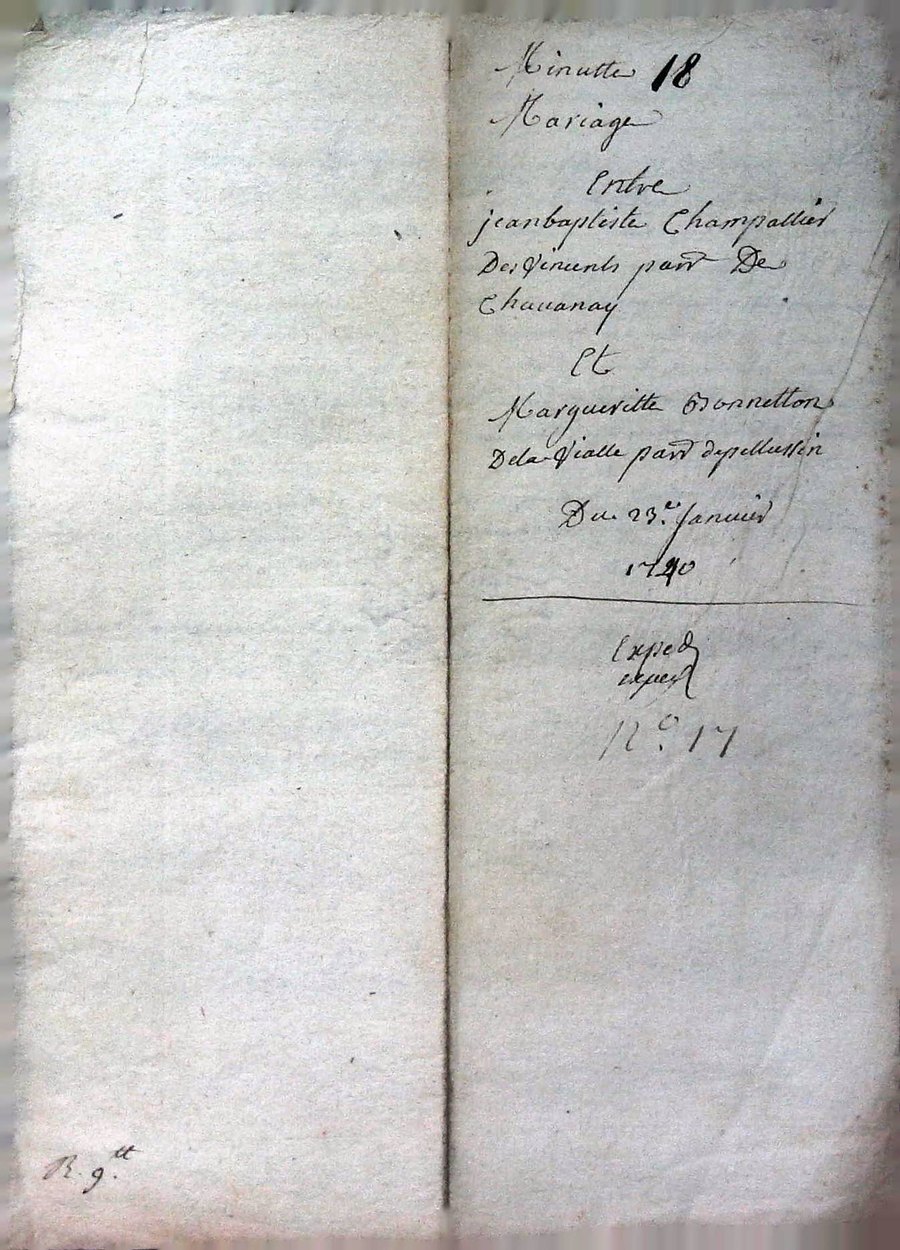 Minutte 18
Mariage
Entre
jeanbaptiste Champallier
Des Vincents parr De
Chauanay
Et
Margueritte Bonnetton
Dela Vialle parr depellussin
Du 23.e Januier
1740
Exped
N° 17
R. 9.tt